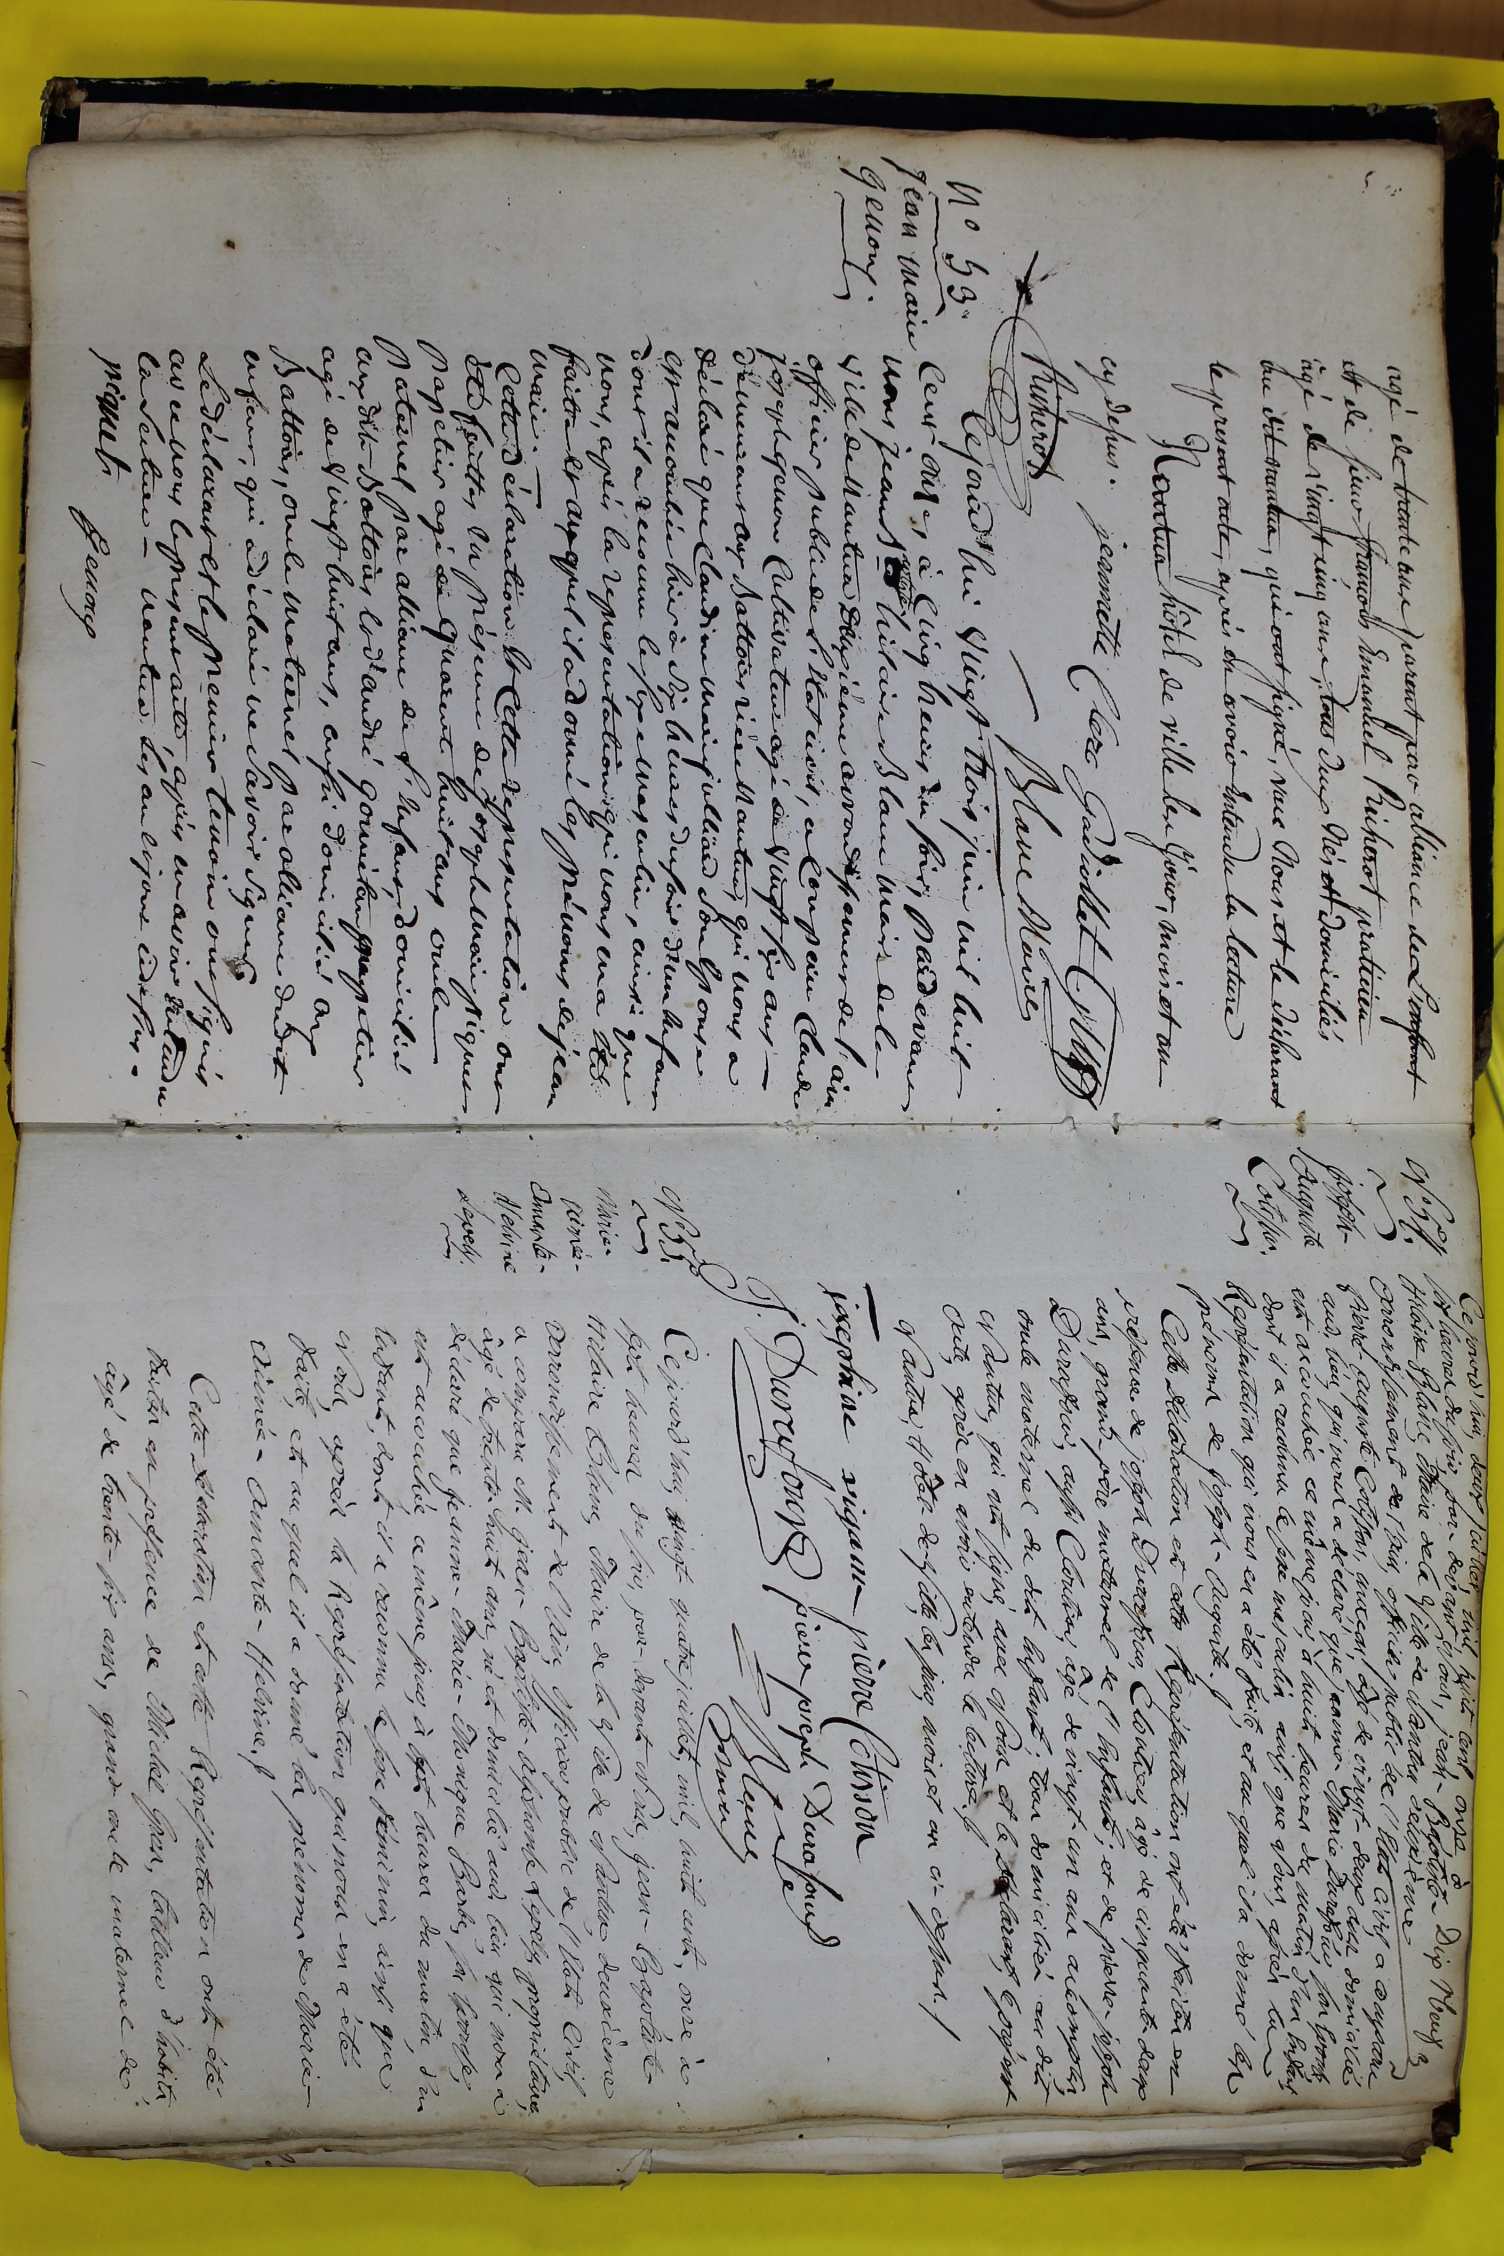 agé de trente ans parent par alliance de L'enfant
et de sieur françois Emanuel Ruherot praticien
agé de vingt cinq ans, tous deux Nés et domiciliés
au dit nantua, qui ont signé, avec Nous et le déclarant
le présent acte, après en avoir entendu la lecture
Nantua hôtel de ville les jour, mois et an
cy dessus. jeannette Clerc Gadiollet
Ruherot
Blanc Maire
N.º 53.
jean marie
genoux.
Cejourd'hui vingt trois juin mil huit
Cent onze, à Cinq heures du soir, pardevant
nous jean B.te hilaire Blanc maire de la
Ville de Nantua Deuxième arrond.t Communal de l'ain
officier public de l'Etat civil, a Comparu Claude
joseph genoux Cultivateur agé de vingt six ans
demeurant aux Battoirs rière Nantua, qui nous a
déclaré que Claudine marie julliard son Epouse
est accouchée hier à dix heures du soir d'un Enfant
dont il a reconnu le sexe masculin, ainsi que
nous, après la représentation qui nous en a été
faite et auquel il a donné les prénoms de jean
marie.
Cette déclaration et Cette représentation ont
été faittes en présence de joseph marie piquet
papetier agé de quarante huit ans oncle
paternel par alliance de l'Enfant, domicilié
auxdits Battoirs et d'andré papetier
agé de vingt huit ans, aussi domicilié aux
Battoirs, oncle maternel par alliance dudit
enfant, qui a déclaré ne savoir signer
Le déclarant et le premier temoin ont signé
avec nous le présent acte, après en avoir Entendu
la lecture nantua les an et jour cidessus.
piquet Genoux
N.º 54.
Joseph-
Auguste
Cotisson.
Cejourd'hui, deux juillet, mil huit cent onze, à
heures du soir, par-devant Nous, jean-Baptiste
hilaire Blanc, Maire de la Ville de Nantua deuxième
arrondissement de l'Ain, officier public de l'Etat Civil, a comparu
Pierre-Auguste Cotisson, âgé de vingt-deux ans domicilié
aud. lieu, qui nous a déclaré que jeanne-Marie Durafour, son Epouse
est accouchée ce même jour, à huit heures du matin d'un Enfant
dont il a reconnu le sexe masculin ainsi que Nous, après la
Représentation qui nous en a été faite, et au quel il a donné les
prénoms de Joseph-Auguste.
Cette déclaration et cette Représentation ont été faites en
présence de joseph Durafour, Cloutier, âgé de cinquante deux
ans, grand-père maternel de l'enfant, et de pierre-joseph
Durafour, aussi Cloutier, âgé de vingt-un ans accomplis,
oncle maternel du dit Enfant; tous domiciliés au dit
Nantua, qui ont signé, avec Nous et le déclarant le présent
acte, après en avoir entendu la lecture
Nantua, Hôtel de Ville les jour, mois et an ci-dessus
pierre Cotisson
J. Durafour pierre joseph Durafour
Blanc
maire
N.º 55.
Marie-
Aimée-
Amarante-
Helvine
Cejourd'hui, vingt quatre juillet, mil huit cent, onze à
sept heures du soir, par-devant Nous, jean-Baptiste
Hilaire Blanc, Maire de la Ville de Nantua, deuxième
arrondissement de l'Ain officier public de l'Etat Civil,
a comparu M. jean-Baptiste-alphonse propriétaire,
âgé de trente-huit ans, né et domicilié aud. lieu qui nous a
déclaré que jeanne-Marie-Monique Barbe, son Epouse,
est accouchée ce même jour, à sept heures du matin d'un
Enfant, dont il a reconnu le sexe féminin, ainsi que
Nous, après la Représentation qui nous en a été
faite, et au quel il a donné les prénoms de Marie-
Aimée-Amarante-Helvine.
Cette déclaration et cette Représentation ont été
faites en présence de Michel
âgé de trente-six ans, grand oncle maternel de